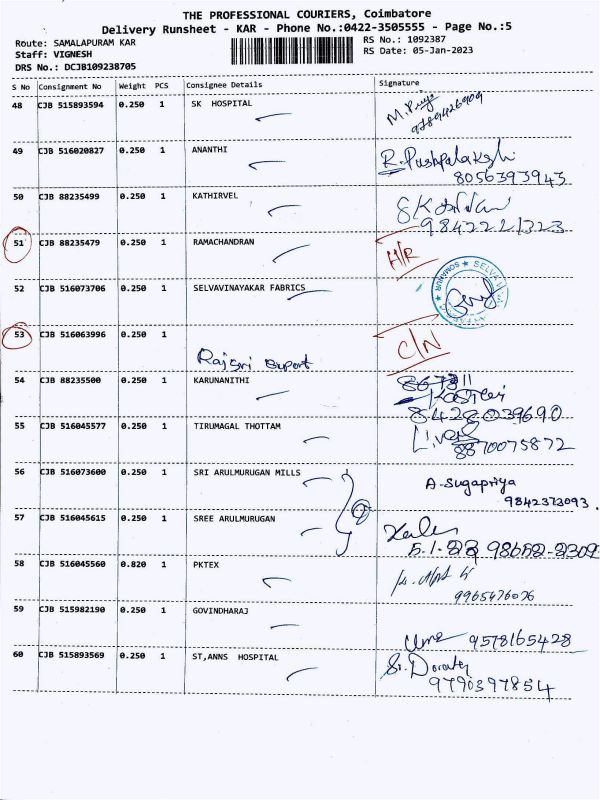 THE PROFESSIONAL COURIERS, Coimbatore
Delivery Runsheet - KAR - Phone No.:0422-3505555 - Page No.:5
Route: SAMALAPURAM KAR
RS No.: 1092387
Staff: VIGNESH
RS Date: 05-Jan-2023
DRS No.: DCJB109238705
S No Consignment No Weight PCS Consignee Details Signature
48 CJB 515893594 0.250 1 SK HOSPITAL
M. Priya
9789426909
49 CJB 516020827 0.250 1 ANANTHI
R. Pushpalakshi
8056393943
50 CJB 88235499 0.250 1 KATHIRVEL
9842221323
51 CJB 88235479 0.250 1 RAMACHANDRAN H/R
52 CJB 516073706 0.250 1 SELVAVINAYAKAR FABRICS
53 CJB 516063996 0.250 1 C/N
Rajsri Export
54 CJB 88235500 0.250 1 KARUNANITHI
8428039690
55 CJB 516045577 0.250 1 TIRUMAGAL THOTTAM
8870075872
56 CJB 516073600 0.250 1 SRI ARULMURUGAN MILLS A. Sugapriya
9842373093.
57 CJB 516045615 0.250 1 SREE ARULMURUGAN
58 CJB 516045560 0.820 1 PKTEX
9965476076
59 CJB 515982190 0.250 1 GOVINDHARAJ
Uma 9578165428
60 CJB 515893569 0.250 1 ST,ANNS HOSPITAL
Sr. Dorathy
9790397854